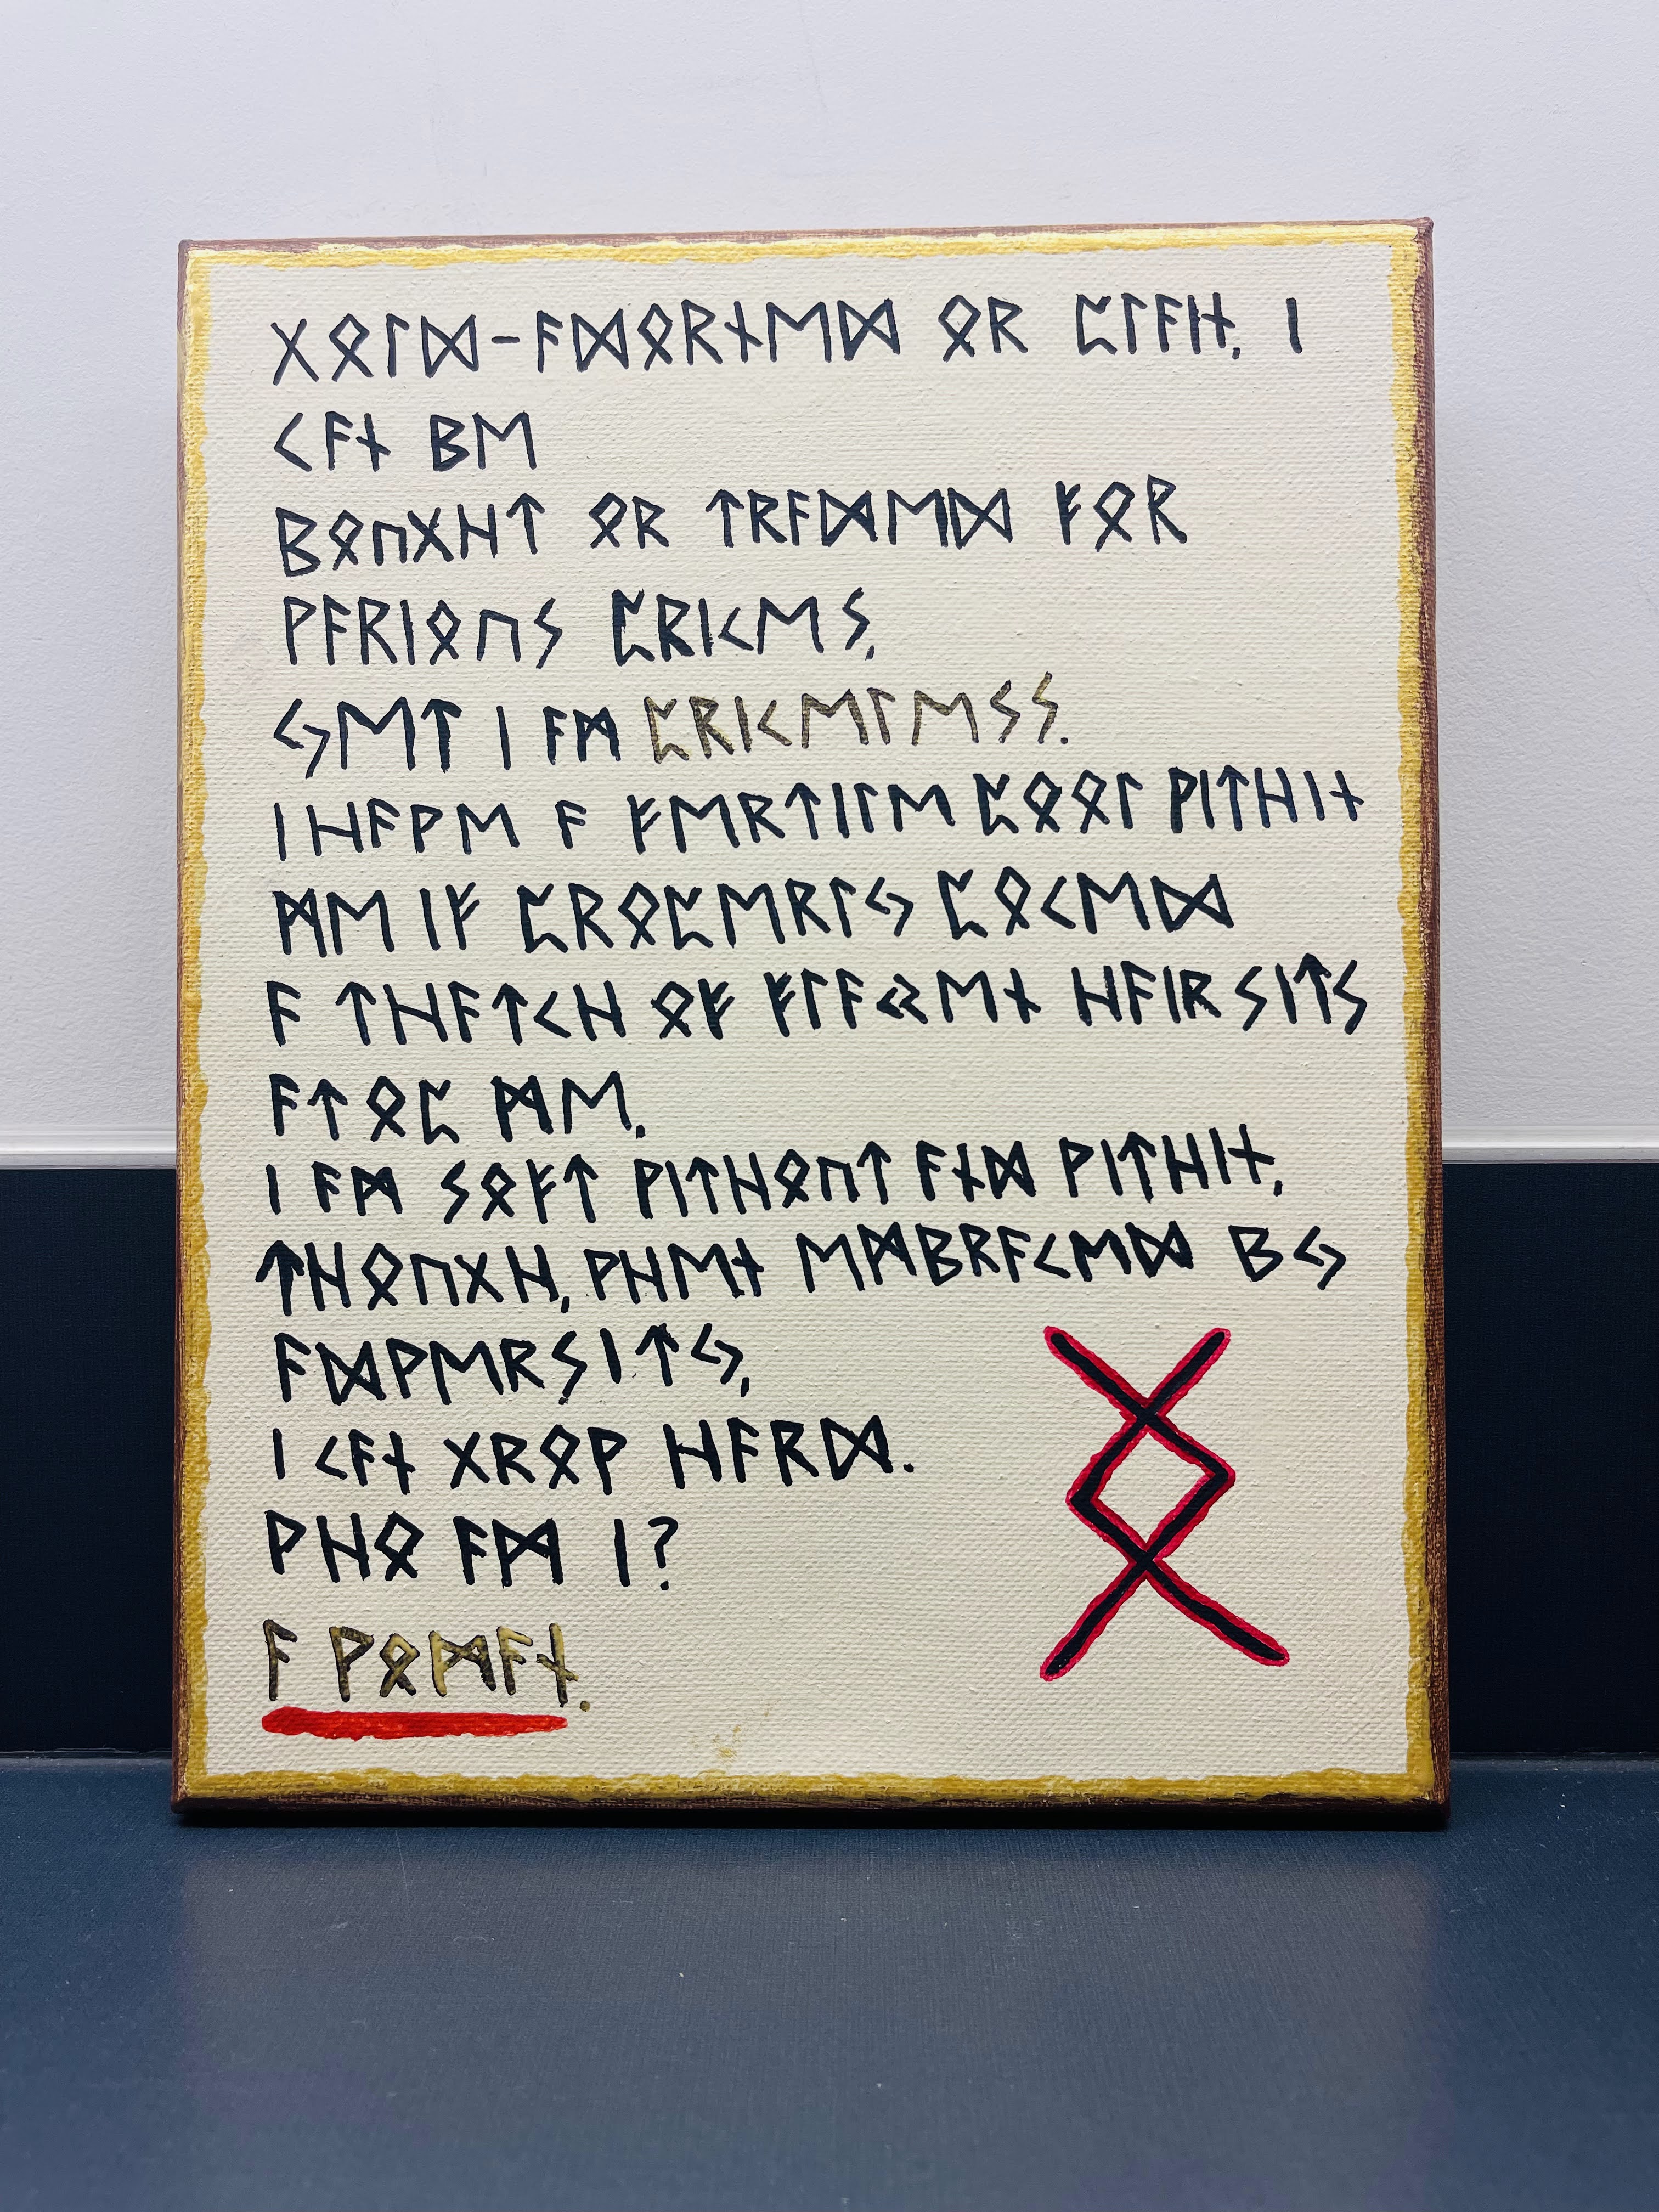 ᚷᛟᛚᛞ-ᚨᛞᛟᚱᚾᛖᛞ ᛟᚱ ᛈᛚᚨᛁᚾ, ᛁ
ᚲᚨᚾ ᛒᛖ
ᛒᛟᚢᚷᚺᛏ ᛟᚱ ᛏᚱᚨᛞᛖᛞ ᚠᛟᚱ
ᚹᚨᚱᛁᛟᚢᛊ ᛈᚱᛁᚲᛖᛊ,
ᛃᛖᛏ ᛁ ᚨᛗ ᛈᚱᛁᚲᛖᛚᛖᛊᛊ.
ᛁ ᚺᚨᚹᛖ ᚨ ᚠᛖᚱᛏᛁᛚᛖ ᛈᛟᛟᛚ ᚹᛁᛏᚺᛁᚾ
ᛗᛖ ᛁᚠ ᛈᚱᛟᛈᛖᚱᛚᛃ ᛈᛟᚲᛖᛞ
ᚨ ᛏᚺᚨᛏᚲᚺ ᛟᚠ ᚠᛚᚨᚲᛊᛖᚾ ᚺᚨᛁᚱ ᛊᛁᛏᛊ
ᚨᛏᛟᛈ ᛗᛖ.
ᛁ ᚨᛗ ᛊᛟᚠᛏ ᚹᛁᛏᚺᛟᚢᛏ ᚨᚾᛞ ᚹᛁᛏᚺᛁᚾ,
ᛏᚺᛟᚢᚷᚺ, ᚹᚺᛖᚾ ᛖᛗᛒᚱᚨᚲᛖᛞ ᛒᛃ
ᚨᛞᚹᛖᚱᛊᛁᛏᛃ,
ᛁ ᚲᚨᚾ ᚷᚱᛟᚹ ᚺᚨᚱᛞ.
ᚹᚺᛟ ᚨᛗ ᛁ?
ᚨ ᚹᛟᛗᚨᚾ.
ᛝ